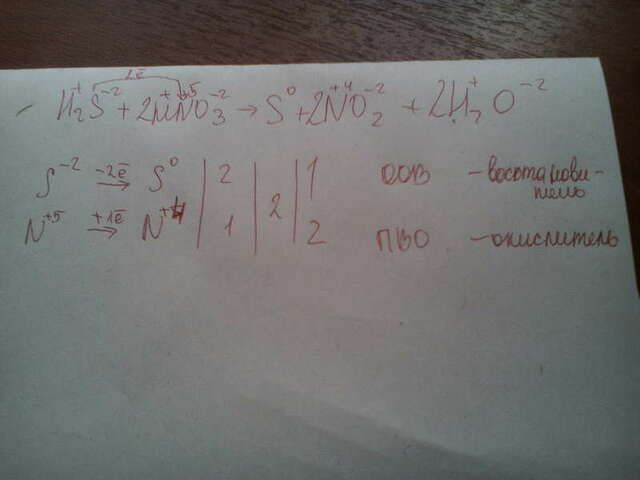 2e̅
H₂⁺S⁻² + 2H⁺N⁺⁵O₃⁻² → S⁰ + 2N⁺⁴O₂⁻² + 2H₂⁺O⁻²
S⁻² −2e̅→ S⁰ | 2 | | 1 ООВ - восстанови-
тель
N⁺⁵ +1e̅→ N⁺⁴ | 1 | 2 | 2 ПВО - окислитель